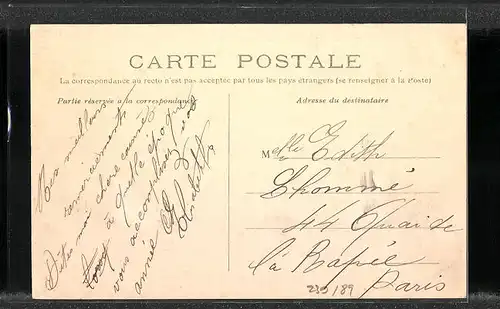 CARTE POSTALE
La correspondance au recto n'est pas acceptée par tous les pays étrangers (se renseigner à la Poste)
Partie réservée à la correspondance
Adresse du destinataire
Mes meilleurs
remerciements
Dites moi chère
à quelle époque
vous accomplissez vos
année
Melle Edith
Lhommé
44 Quai de
la Rapée
Paris
230/89